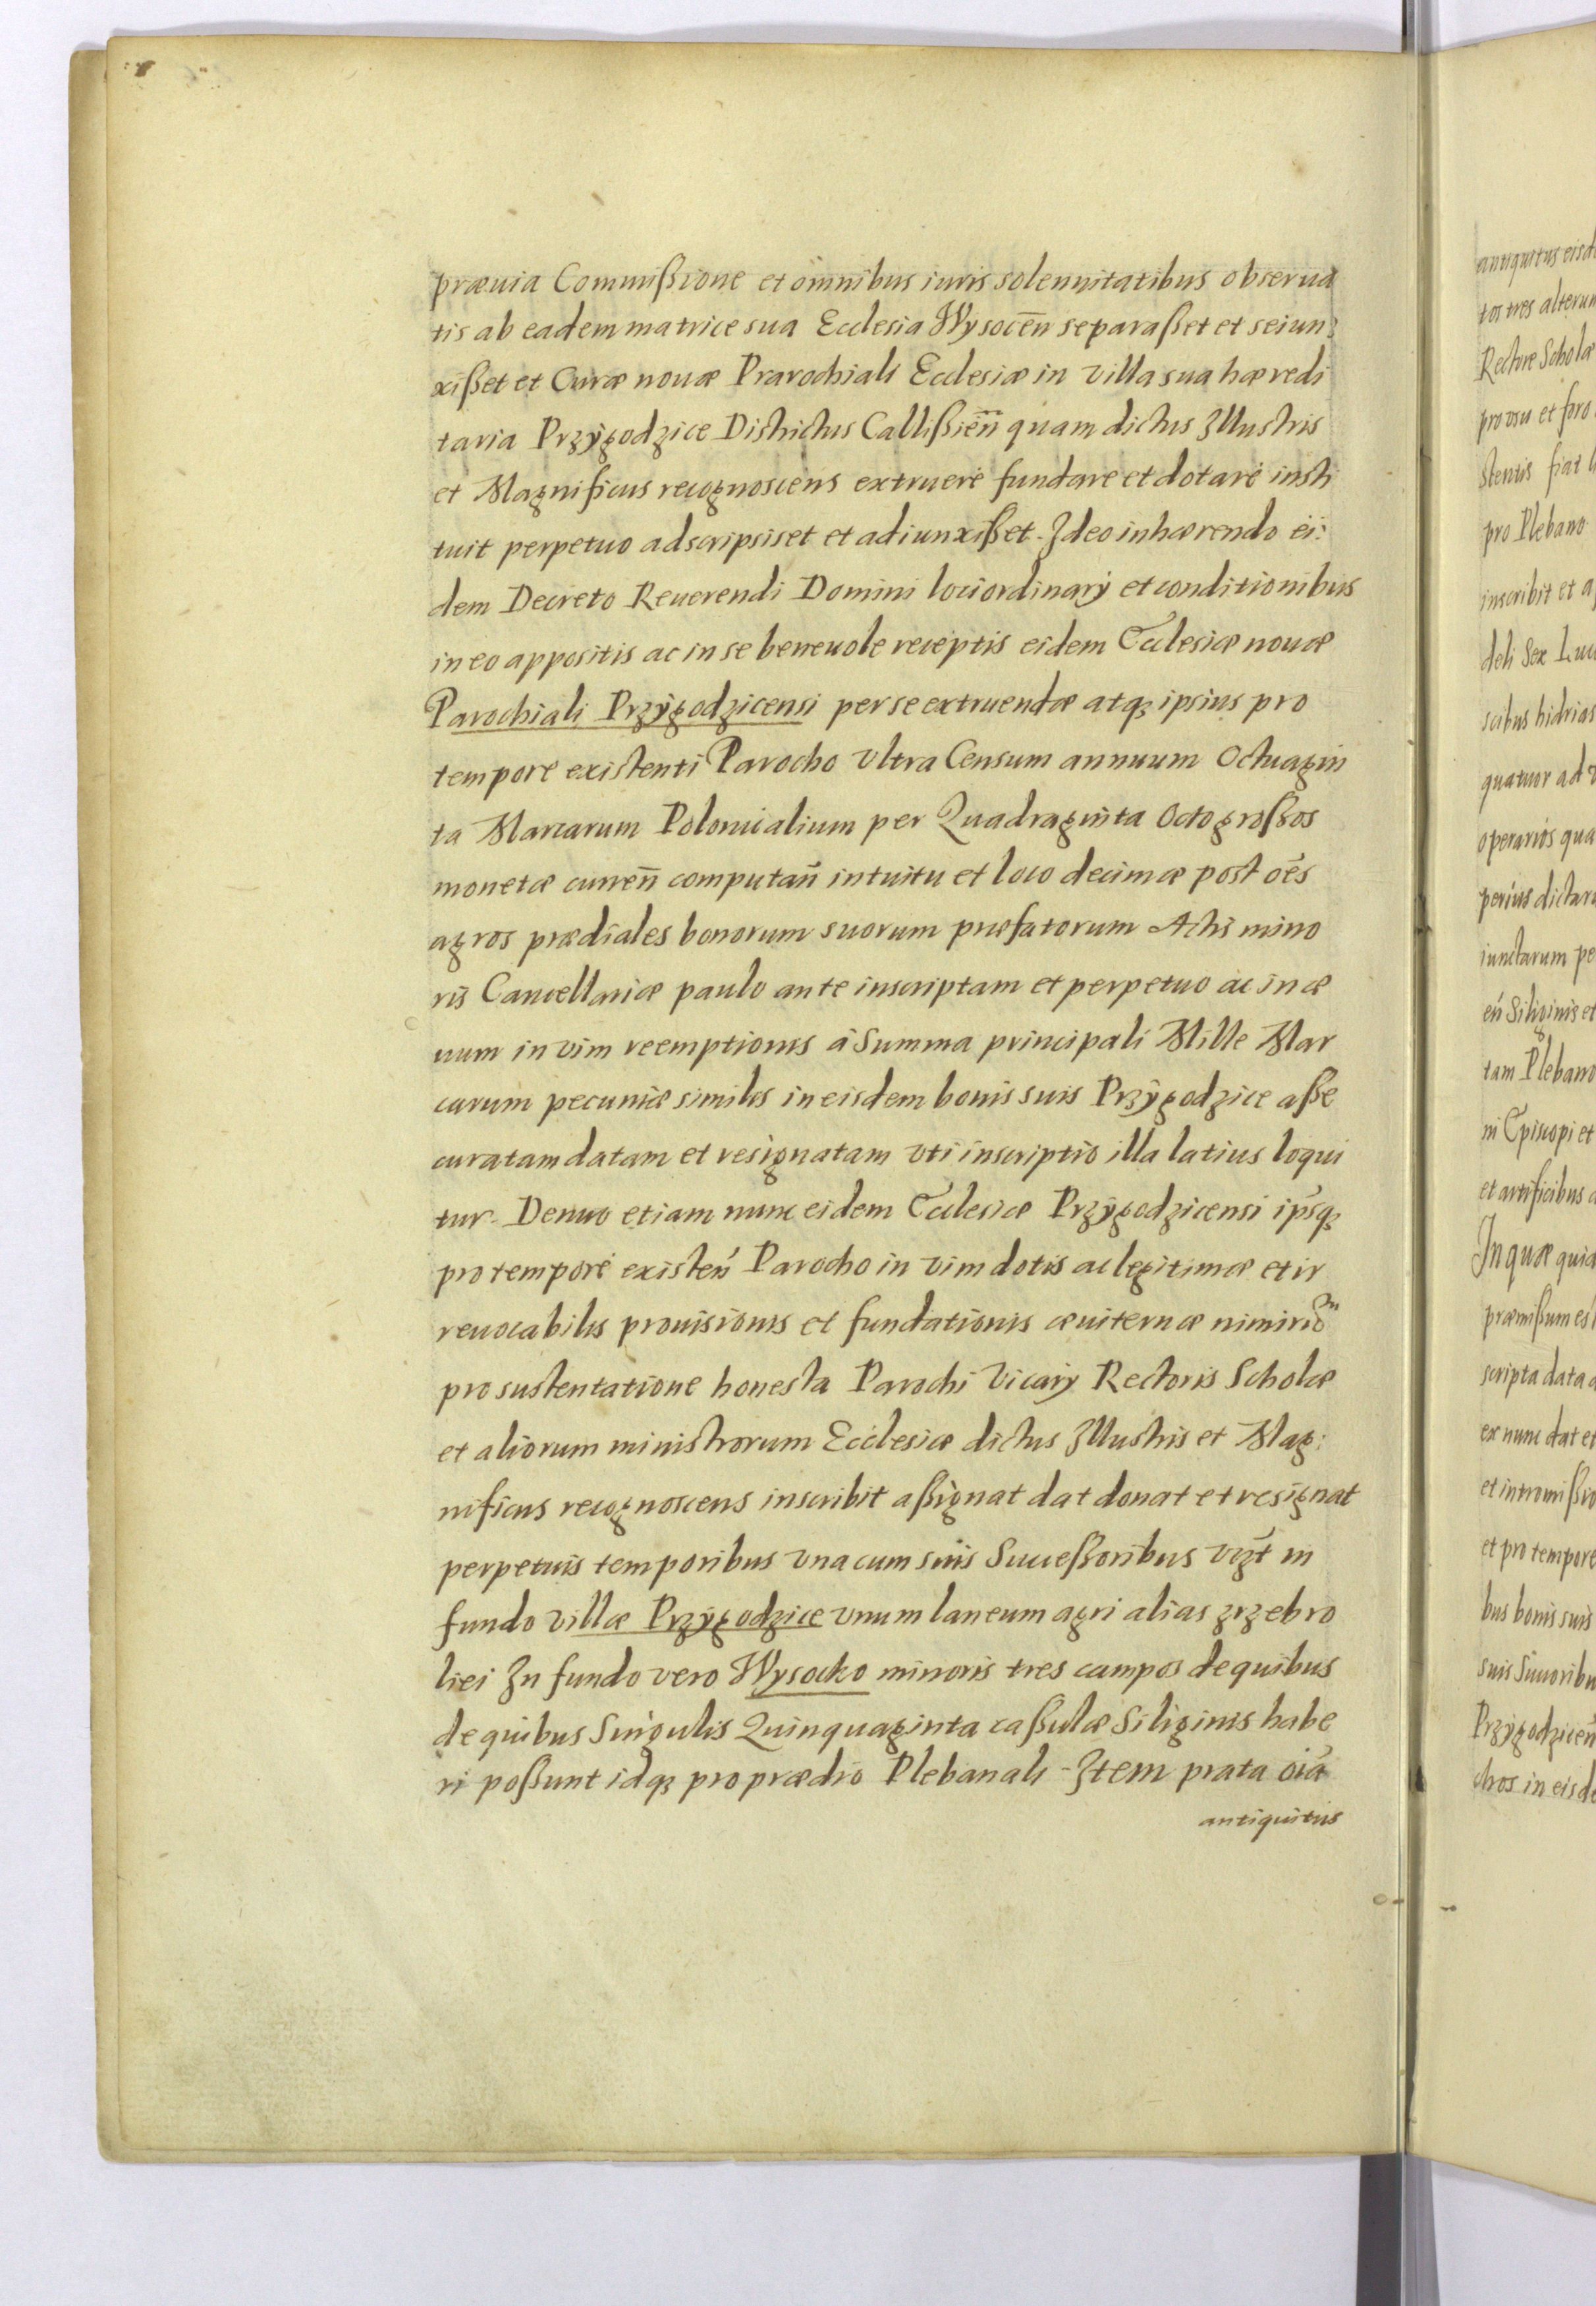 præuia Commißione et omnibus iuris solennitatibus obserua
tis ab eadem matrice sua Ecclesia Wysoceñ separaßet et seiun:
xißet et Curæ nouæ Prarochiali Ecclesiæ in villa sua hæredi
taria Przÿgodzice Districtus Callißieñ quam dictus Illustris
et Magnificus recognoscens extruere fundare et dotare insti
tuit perpetuo adscripsiset et adiunxißet. Ideo inhærendo ei:
dem Decreto Reuerendi Domini loci ordinarÿ et conditionibus
in eo appositis ac in se beneuole receptis eidem Ecclesiæ nouæ
Parochiali Przÿgodzicensi per se extruendæ atq; ipsius pro
tempore existenti Parocho Vltra Censum annuum Octuagin
ta Marcarum Polonicalium per Quadraginta Octo großos
monetæ curreñ computañ intuitu et loco decimæ post oẽs
agros prædiales bonorum suorum præfatorum Actis mino
ris Cancellariæ paulo ante inscriptam et perpetuo ac in æ
uum in vim reemptionis à Summa principali Mille Mar
carum pecuniæ similis in eisdem bonis suis Przÿgodzice aße
curatam datam et resignatam vti inscriptio illa latius loqui
tur. Denuo etiam nunc eidem Ecclesiæ Przÿgodzicensi ipsq;
pro tempore existeñ Parocho in vim dotis ac legitimæ et ir
reuocabilis prouisionis et fundationis æuiternæ nimirũ
pro sustentatione honesta Parochi Vicarÿ Rectoris Scholæ
et aliorum ministrorum Ecclesiæ dictus Illustris et Mag:
nificus recognoscens inscribit aßignat dat donat et resignat
perpetuis temporibus vna cum suis Sucteßoribus vizt in
fundo villæ Przÿgodzice vnum laneum agri alias zrzebro
liei In fundo vero Wysocko minoris tres campos de quibus
de quibus Singulis Quinquaginta caßulæ Siliginis habe
ri poßunt idq; pro prædio Plebanali - Item prata oĩa
antiquitus
antiquitus eisd
tos tres alterum
Rectore Scholæ
pro vsu et foro
stentis fiat l
pro Plebano
inscribit et a
deli Sex Luc
scibus hidrias
quatuor ad v
operarios qua
perius dictar
iunctarum pe
eñ Siliginis et
tam Plebano
ni Episcopi et
et artificibus a
In quæ quid
præmißum est
scripta data a
ex nunc dat et
et intromißio
et pro tempore
bus bonis suis
suis Sucoribu
Przÿgodziceñ
chos in eisde